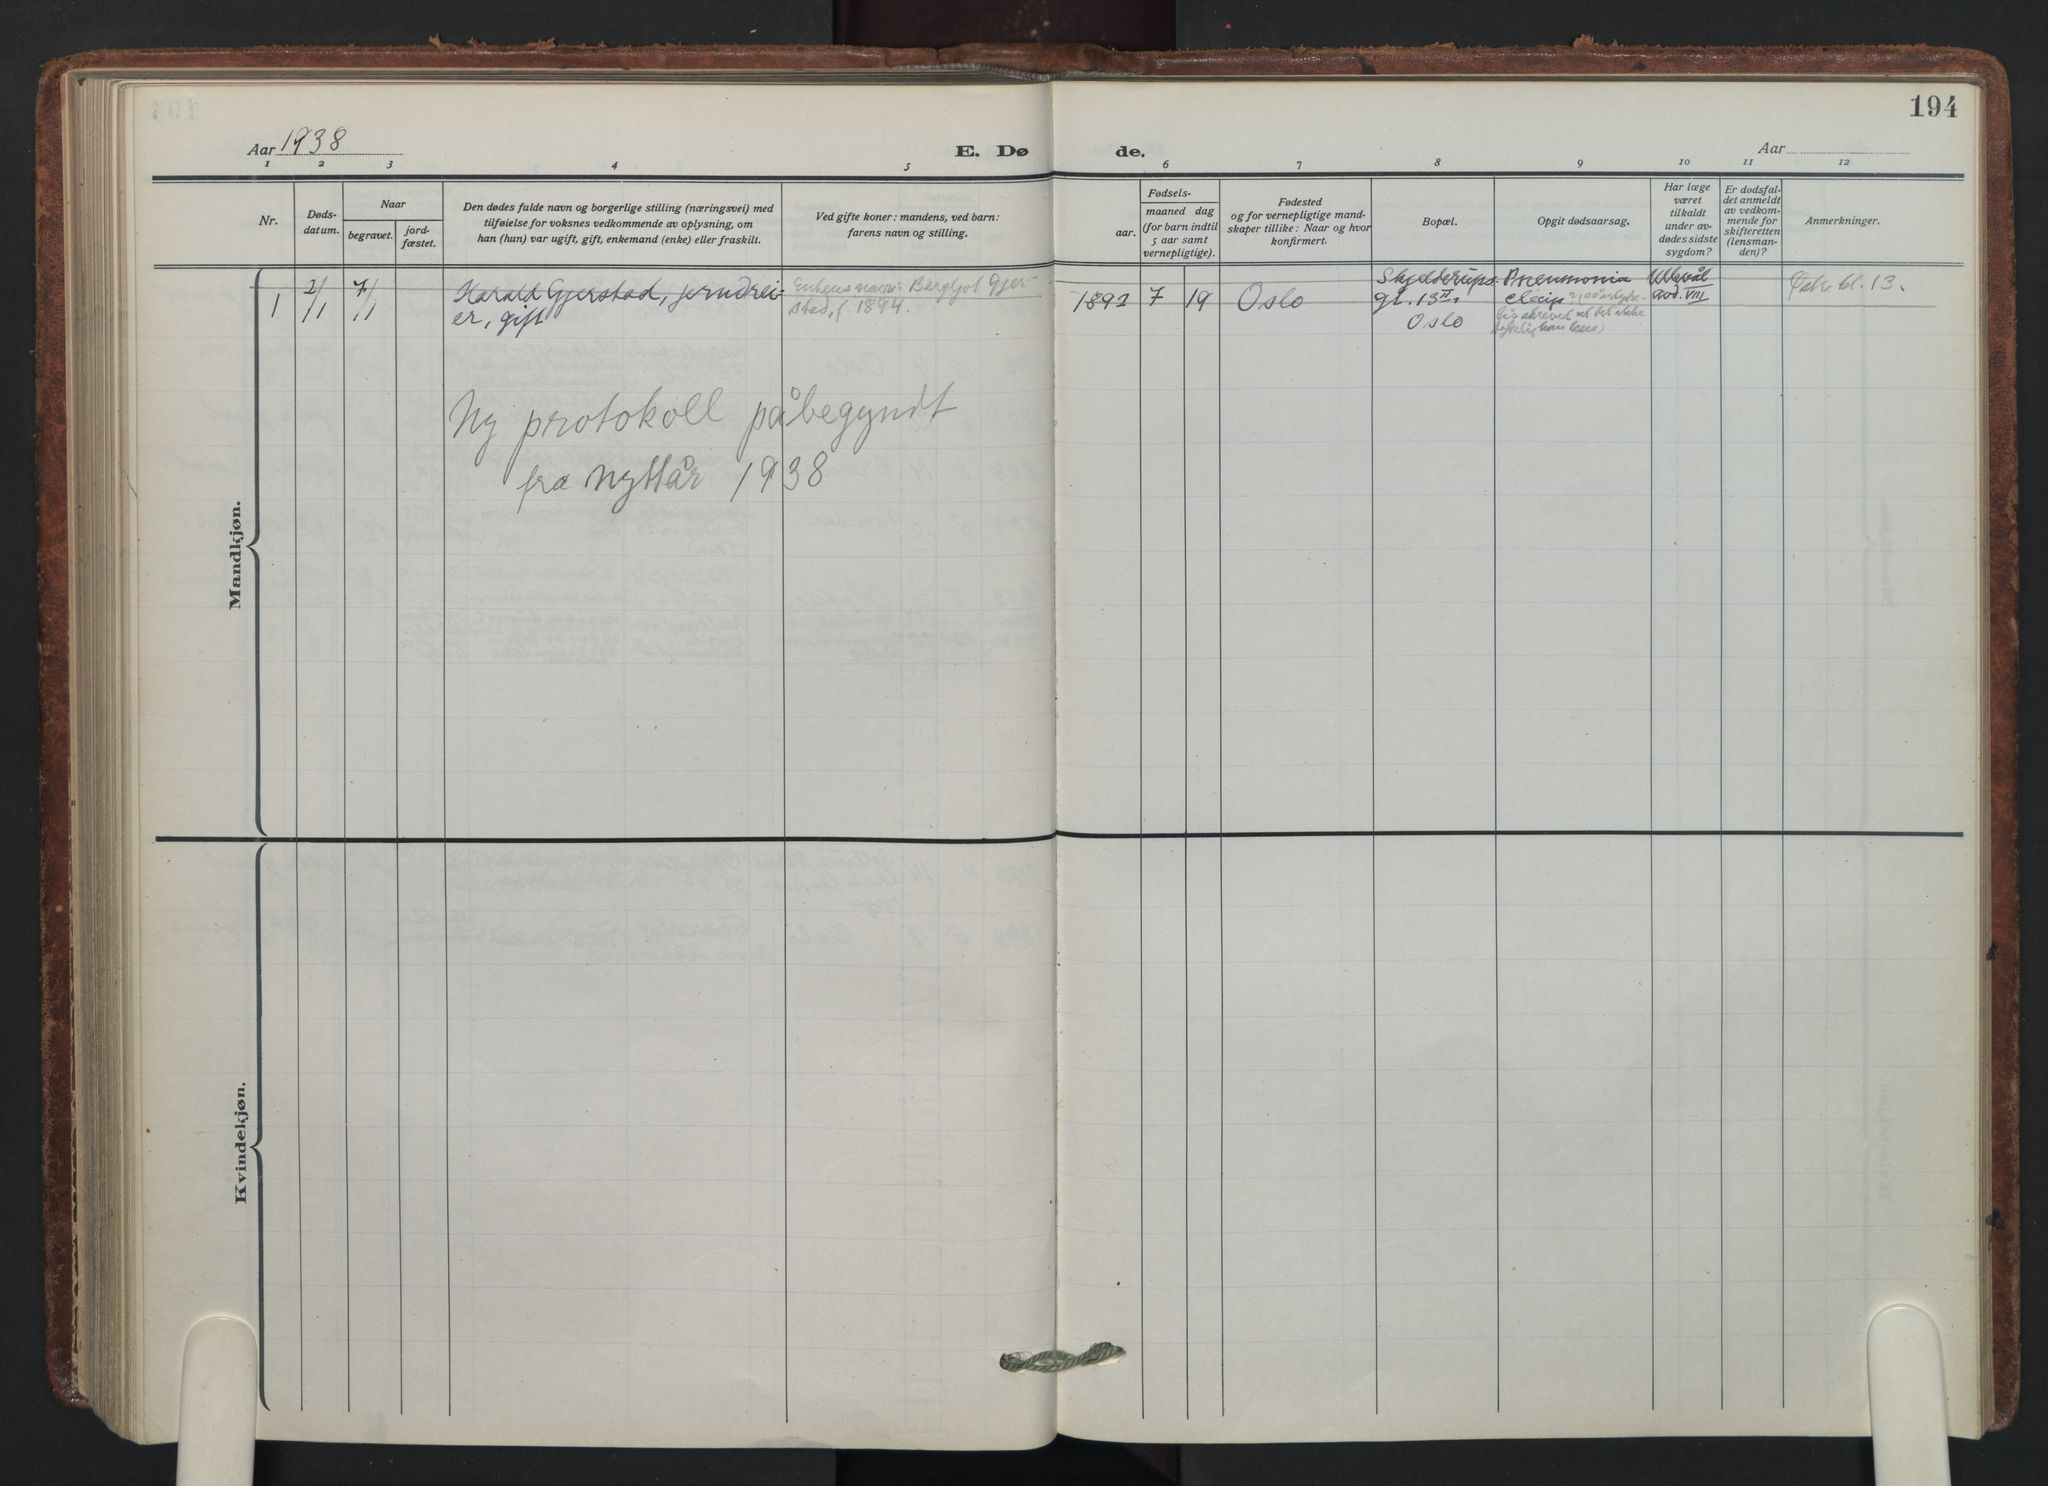 194
Aar 1938
E. Dø
de.
Aar
1 2 3 4 5 6 7 8 9 10 11 12
Nr.
Døds-
datum.
Naar
begravet.
jord-
fæstet.
Den dødes fulde navn og borgerlige stilling (næringsvei) med
tilføielse for voksnes vedkommende av oplysning, om
han (hun) var ugift, gift, enkemand (enke) eller fraskilt.
Ved gifte koner: mandens, ved barn:
farens navn og stilling.
Fødsels-
aar.
maaned dag
(for barn indtil
5 aar samt
vernepligtige).
Fødested
og for vernepligtige mand-
skaper tillike: Naar og hvor
konfirmert.
Bopæl.
Opgit dødsaarsag.
Har læge
været
tilkaldt
under av-
dødes sidste
sygdom?
Er dødsfal-
det anmeldt
av vedkom-
mende for
skifteretten
(lensman-
den)?
Anmerkninger.
Mandkjøn.
1
2/1
7/1
Harald Gjerstad, jerndrei-
er, gift
Enkens navn: Bergljot Gjer-
stad, f. 1894.
1892 7 19 Oslo
Skjelderups
gt. 13 II
Oslo
Pneumonia
Ullevål
avd. VIII
bl. 13.
Ny protokoll påbegyndt
fra nyttår 1938
Kvindekjøn.